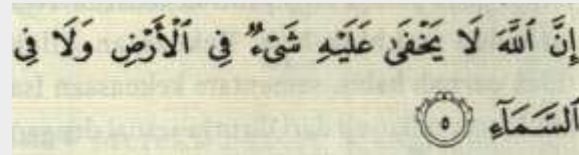 إِنَّ ٱللَّهَ لَا يَخْفَىٰ عَلَيْهِ شَىْءٌ فِى ٱلْأَرْضِ وَلَا فِى
ٱلسَّمَآءِ ۝٥